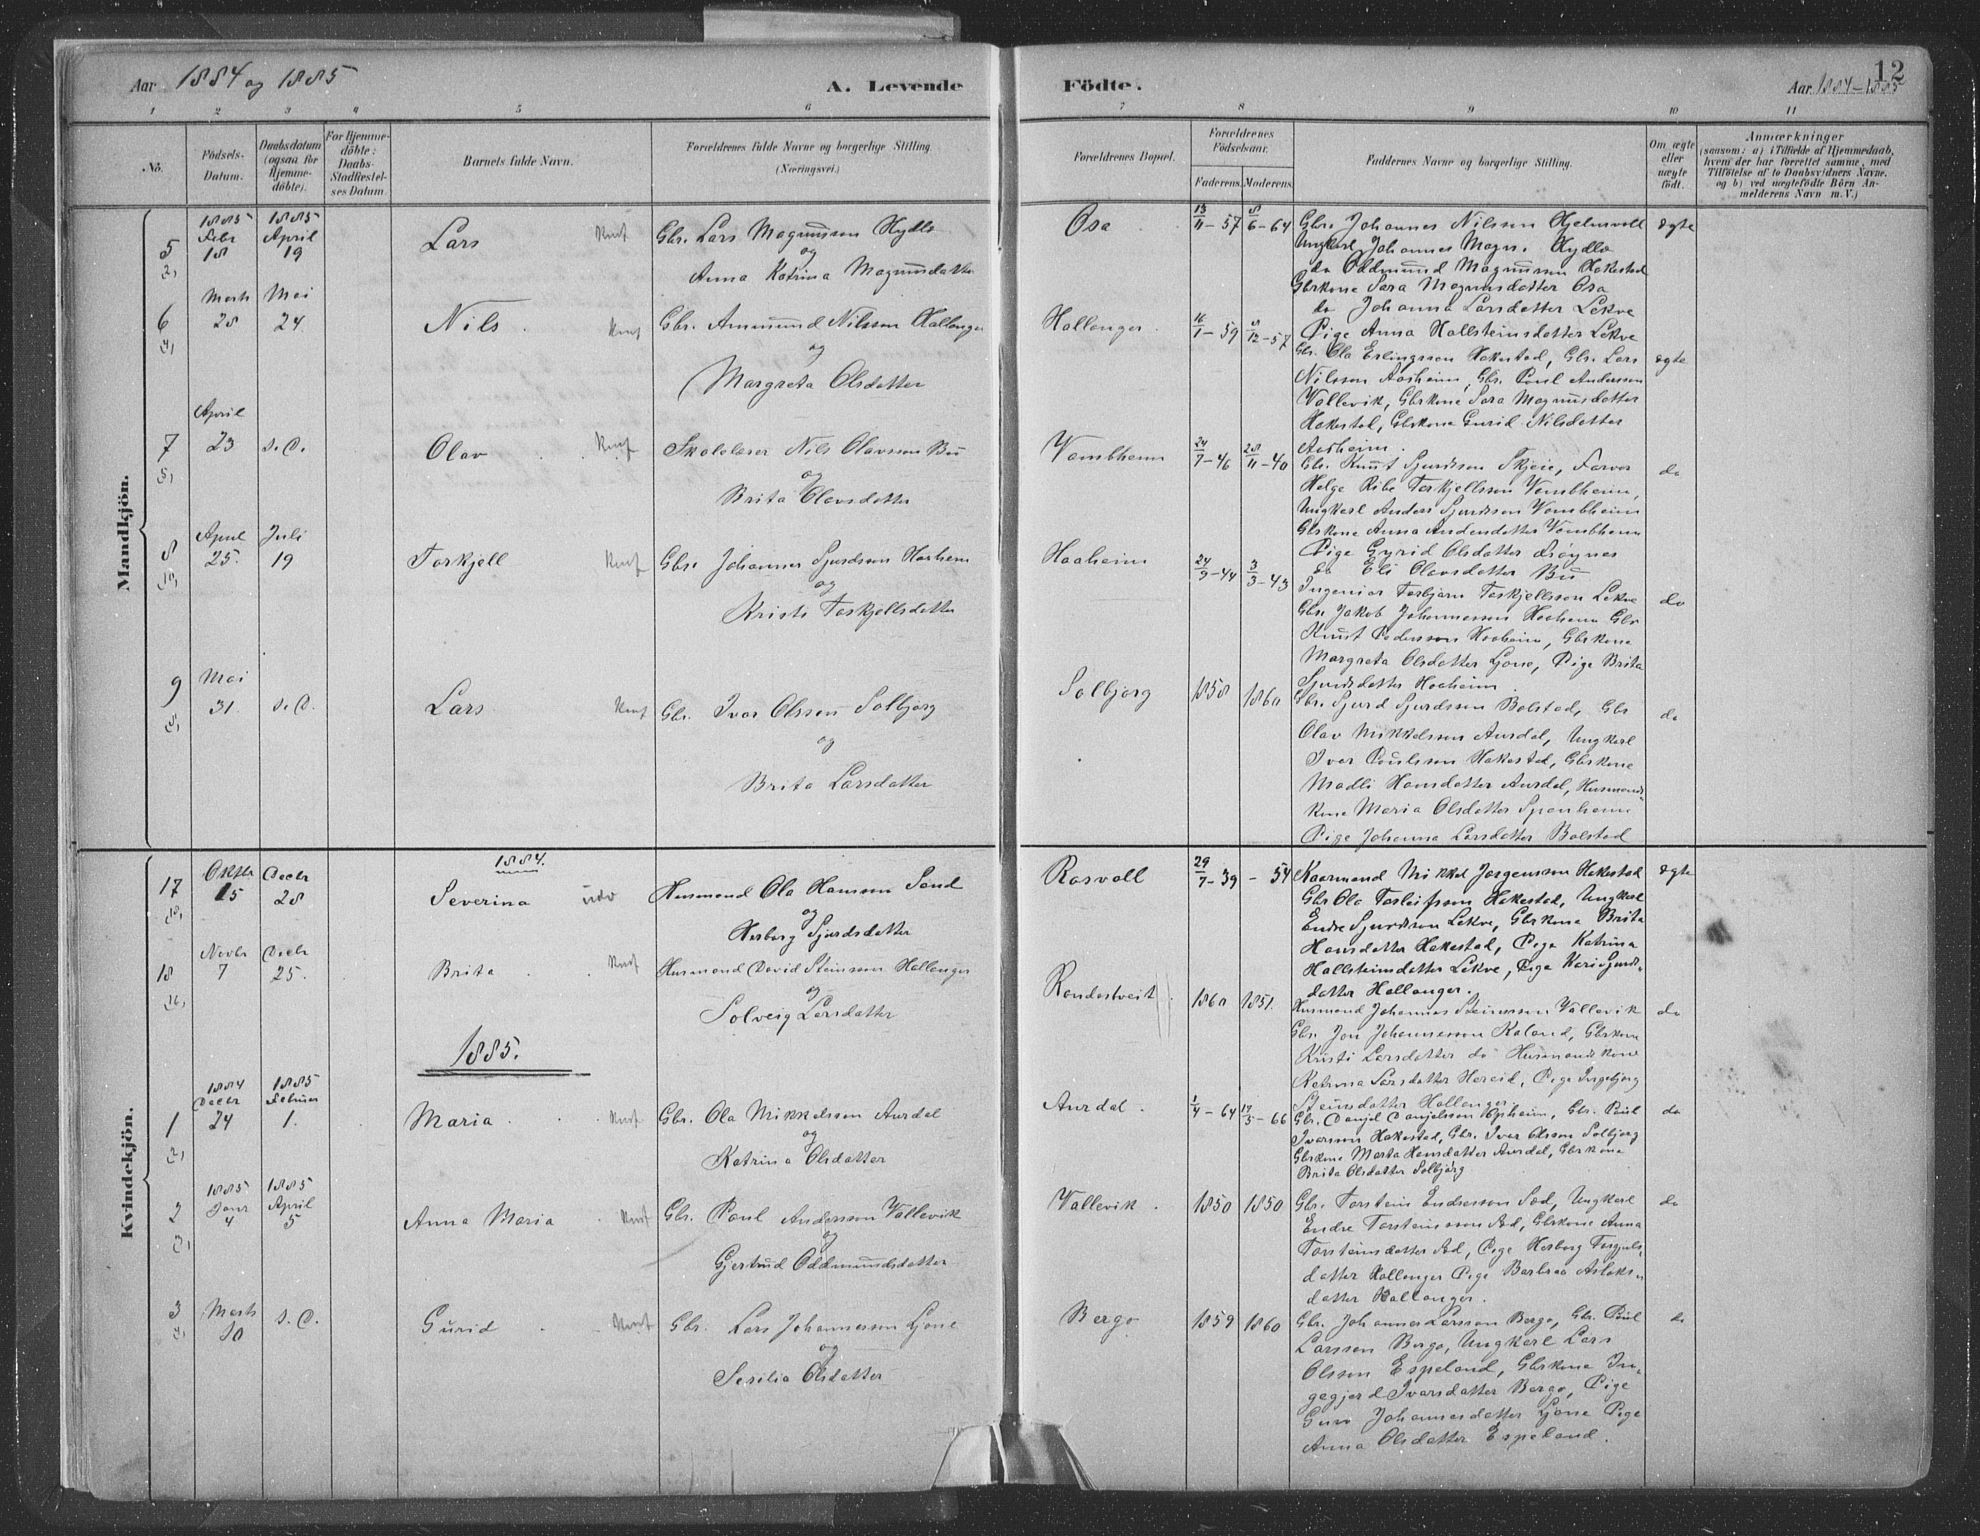 Aar 1884 og 1885
A. Levende
Födte.
Aar 1884–1885
12
1 2 3 4 5 6 7 8 9 10 11
No.
Födsels-
Datum.
Daabsdatum
(ogsaa for
Hjemme-
döbte).
For Hjemme-
döbte:
Daabs-
Stadfæstel-
ses Datum.
Barnets fulde Navn.
Forældrenes fulde Navne og borgerlige Stilling
(Næringsvei.)
Forældrenes Bopæl.
Forældrenes
Födselsaar.
Faderens. Moderens.
Faddernes Navne og borgerlige Stilling.
Om ægte
eller
uægte
födt.
Anmærkninger
(saasom: a) i Tilfælde af Hjemmedaab,
hvem der har forrettet samme, med
Tilföielse af to Daabsvidners Navne.
og b) ved uægtefödte Börn An-
melderens Navn m. V.)
Mandkjön.
5
1885
Febr
18
1885
April
19
Lars
Gbr. Lars Magnusson Hydle
og
Anna Katrina Magnusdatter
Osa
13/11–57 8/6–64
Gbr. Johannes Nilsson Hjelmvoll
Ungkarl Johannes Magn. Hydle
do Oddmund Magnusson Hakestad
Gbrkone Sara Magnusdatter Osa
do Johanna Larsdatter Lekve
Pige Anna Hallsteinsdatter Lekve
ægte
6
Marts
28
Mai
24
Nils
Gbr. Ammund Nilsson Hallanger
og
Margreta Olsdatter
Hallanger
16/1–59 8/12–57
Gbr. Ola Erlingsson Hakestad, Gbr. Lars
Nilsson Aasheim, Gbr. Poul Andersson
Vallevik, Gbrkone Sara Magnusdatter
Hakestad, Gbrkone Gurid Nilsdatter
Aasheim.
ægte
7
April
23
s. D.
Olav
Skolelærer Nils Olavsson Bu
og
Brita Olavsdatter
Vambheim
24/7–46 28/11–40
Gbr. Knut Sjurdsson Skjeie, Farver
Helge Ribe Torkjellsson Vambheim,
Ungkarl Anders Sjurdsson Vambheim
Gbrkone Anna Andersdatter Vambheim
Pige Gyrid Olsdatter Djønes
do Eli Olavsdatter Bu
do
8
April
25.
Juli
19
Torkjell
Gbr. Johannes Sjurdson Haaheim
og
Kristi Torkjellsdatter
Haaheim
24/9–44 3/3–43
Ingeniør Torbjørn Torkjellsson Lekve
Gbr. Jakob Johannesson Haaheim Gbr
Knut Pedersson Haaheim, Gbrkone
Margreta Olsdatter Ljone, Pige Brita
Sjursdatter Haaheim.
do
9
Mai
31.
s. D.
Lars
Gbr. Ivar Olsson Solbjørg
og
Brita Larsdatter
Solbjørg
1858 1860
Gbr. Sjurd Sjurdsson Bolstad, Gbr
Olav Mikkelsson Aurdal, Ungkarl
Iver Poulsson Hakestad, Gbrkone
Madli Hansdatter Aurdal, Husmands-
kone Maria Olsdatter Spanheim
Pige Johanna Larsdatter Bolstad
do
Kvindekjön.
1884.
17
Oktbr
15
Decbr
28
Severina
udv
Husmand Ola Hansson Sand
og
Herborg Sjurdsdatter
Rosvall
29/7–39 – 54
Kaarmand Mikkel Jørgensson Hakestad
Gbr Ola Torleifsson Hakestad, Ungkarl
Endre Sjurdsson Lekve, Gbrkone Brita
Hansdatter Hakestad, Pige Katrina
Hallsteinsdatter Lekve, Pige Kari Sjurds-
datter Hallanger.
ægte
18
Novbr
7
Decbr
25.
Brita
Husmand David Steinsson Hallanger
og
Solveig Larsdatter
Rondestveit
1860 1851.
Husmand Johannes Steinsson Vallevik
Gbr. Jon Johannesson Kaland, Gbrkone
Kristi Larsdatter do Husmandskone
Katrina Larsdatter Hereid, Pige Ingebjørg
Steinsdatter Hallanger
do
1885.
1
1884
Decbr
24
1885
Februar
1.
Maria
Gbr. Ola Mikkelsson Aurdal
og
Katrina Olsdatter
Aurdal.
1/4–64 17/3–66
Gbr. Danjel Danjelsson Opheim, Gbr. Poul
Iversson Hakestad, Gbr. Iver Olsson Solbjørg
Gbrkone Marta Hansdatter Aurdal, Gbrkone
Brita Olsdatter Solbjørg
do
2
1885
Janr
4
1885
April
5
Anna Maria
Gbr. Poul Andersson Vallevik
og
Gjertrud Oddmundsdatter
Vallevik.
1850 1850
Gbr. Torstein Endresson Aad, Ungkarl
Endre Torsteinsson Aad, Gbrkone Anna
Torsteinsdatter Aad, Pige Herborg Torjuls-
datter Hallanger Pige Barbraa Aslaks-
datter Hallanger.
do
3
Marts
10
s. D.
Gurid
Gbr. Lars Johannesson Ljone
og
Sesilia Olsdatter
Bergo
1859 1860
Gbr. Johannes Larsson Bergo, Gbr. Poul
Larsson Bergo, Ungkarl Lars
Olsson Espeland, Gbrkone In-
gegjerd Ivarsdatter Bergo, Pige
Guro Johannesdatter Ljone Pige
Anna Olsdatter Espeland.
do